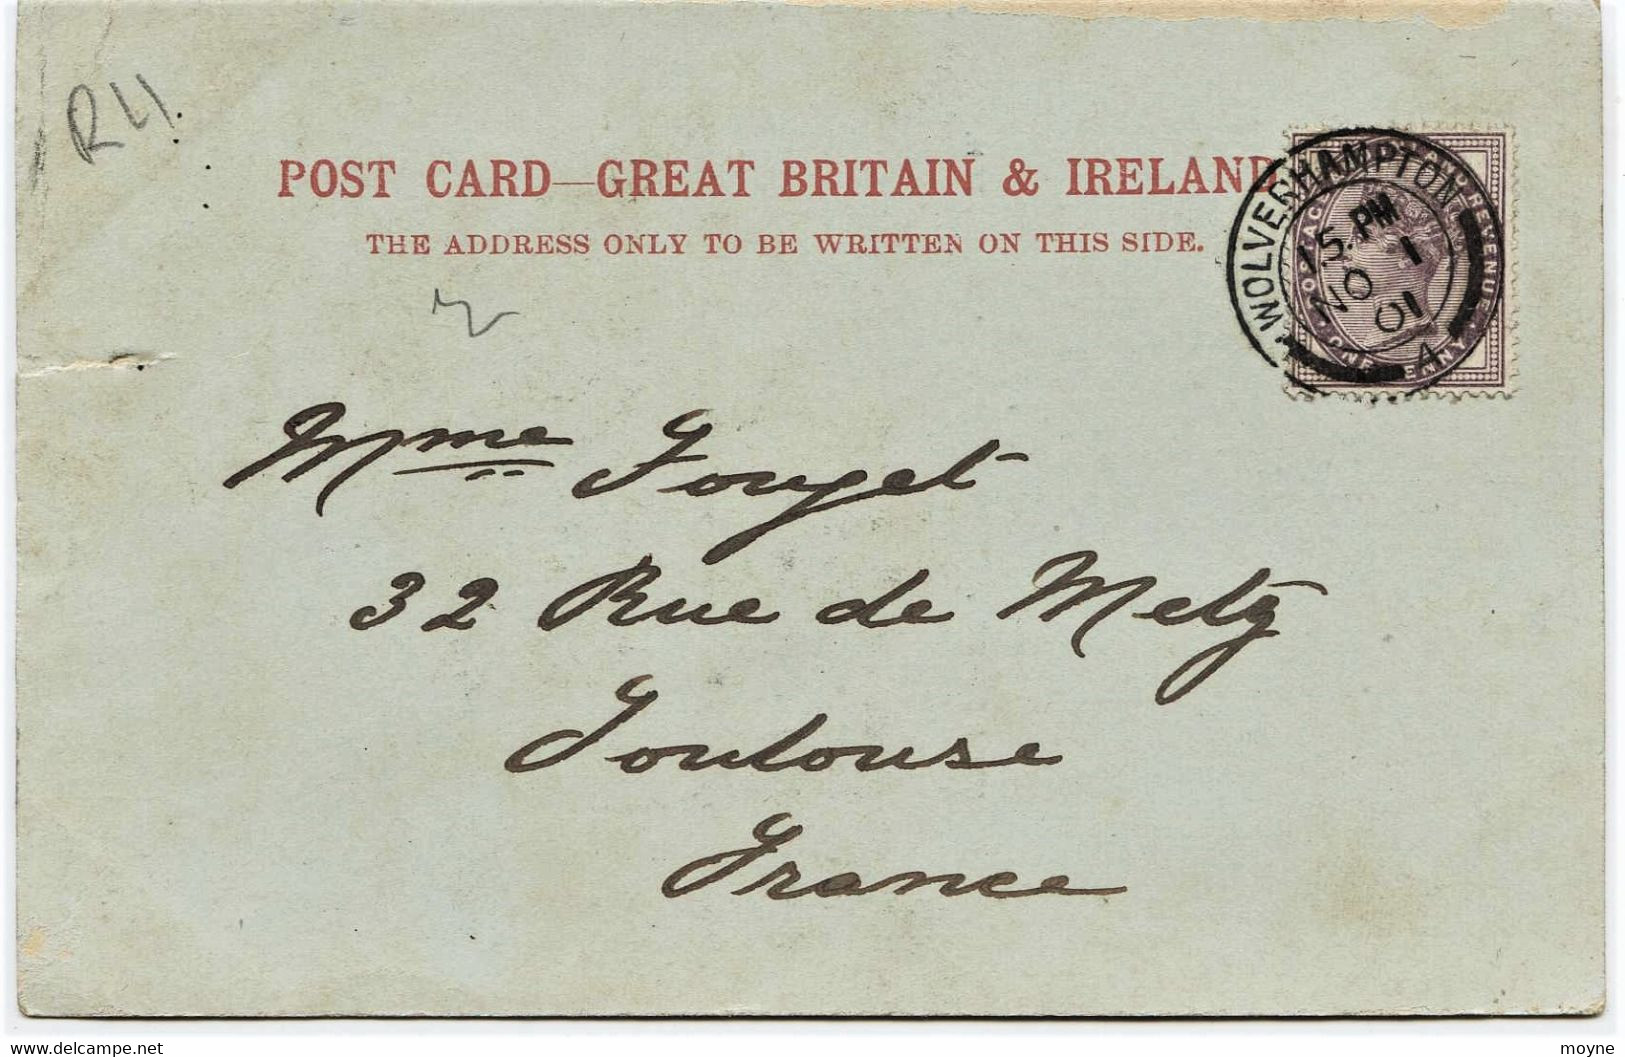 R4.
POST CARD—GREAT BRITAIN & IRELAND
THE ADDRESS ONLY TO BE WRITTEN ON THIS SIDE.
WOLVERHAMPTON
5. PM
NO 1
01
A
REVENUE
ONE
Mme Fouget
32 Rue de Metz
Toulouse
France
delcampe.net
moyne